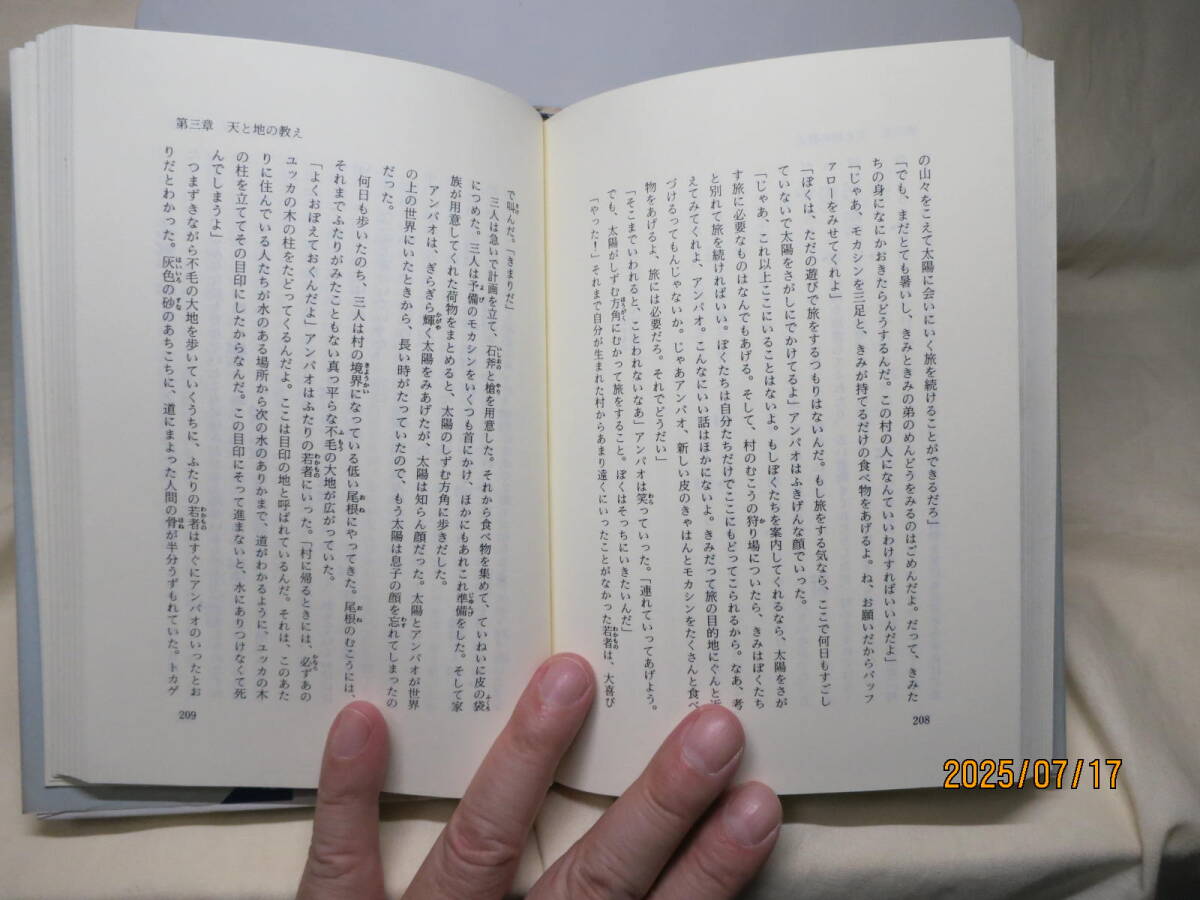 の山々をこえて太陽に会いにいく旅を続けることができるだろ」
「でも、まだとても暑いし、きみときみの弟のめんどうをみるのはごめんだよ。だって、きみた
ちの身になにかおきたらどうするんだ。この村の人になんていいわけすればいいんだよ」
「じゃあ、モカシンを三足と、きみが持てるだけの食べ物をあげるよ。ね、お願いだからバッフ
ァローをみせてくれよ」
「ぼくは、ただの遊びで旅をするつもりはないんだ。もし旅をする気なら、ここで何日もすごし
ていないで太陽をさがしにでかけてるよ」アンパオはふきげんな顔でいった。
「じゃあ、これ以上ここにいることはないよ。もしぼくたちを案内してくれるなら、太陽をさが
す旅に必要なものはなんでもあげる。そして、村のむこうの狩り場についたら、きみはぼくたち
と別れて旅を続ければいい。ぼくたちは自分たちだけでここにもどってこられるから。なあ、考
えてみてくれよ、アンパオ。こんなにいい話はほかにないよ。きみだって旅の目的地にぐんと近
づけるってもんじゃないか。じゃあアンパオ、新しい皮のきゃはんとモカシンをたくさんと食べ
物をあげるよ、旅には必要だろ。それでどうだい」
「そこまでいわれると、ことわれないなあ」アンパオは笑っていった。「連れていってあげよう。
でも、太陽がしずむ方角にむかって旅をすること。ぼくはそっちにいきたいんだ」
「やった！」それまで自分が生まれた村からあまり遠くにいったことがなかった若者は、大喜び
208
第三章　天と地の教え
で叫んだ。「きまりだ」
三人は急いで計画を立て、石斧と槍を用意した。それから食べ物を集めて、ていねいに皮の袋
につめた。三人は予備のモカシンをいくつも首にかけ、ほかにもあれこれ準備をした。そして家
族が用意してくれた荷物をまとめると、太陽のしずむ方角に歩きだした。
アンパオは、ぎらぎら輝く太陽をみあげたが、太陽は知らん顔だった。太陽とアンパオが世界
の上の世界にいたときから、長い時がたっていたので、もう太陽は息子の顔を忘れてしまったの
だった。
何日も歩いたのち、三人は村の境界になっている低い尾根にやってきた。尾根のむこうには、
それまでふたりがみたこともない真っ平らな不毛の大地が広がっていた。
「よくおぼえておくんだよ」アンパオはふたりの若者にいった。「村に帰るときには、必ずあの
ユッカの木の柱をたどってくるんだよ。ここは目印の地と呼ばれているんだ。それは、このあた
りに住んでいる人たちが水のある場所から次の水のありかまで、道がわかるように、ユッカの木
の柱を立ててその目印にしたからなんだ。この目印にそって進まないと、水にありつけなくて死
んでしまうよ」
つまずきながら不毛の大地を歩いていくうちに、ふたりの若者はすぐにアンパオのいったとお
りだとわかった。灰色の砂のあちこちに、道にまよった人間の骨が半分うずもれていた。トカゲ
209
2025/07/17